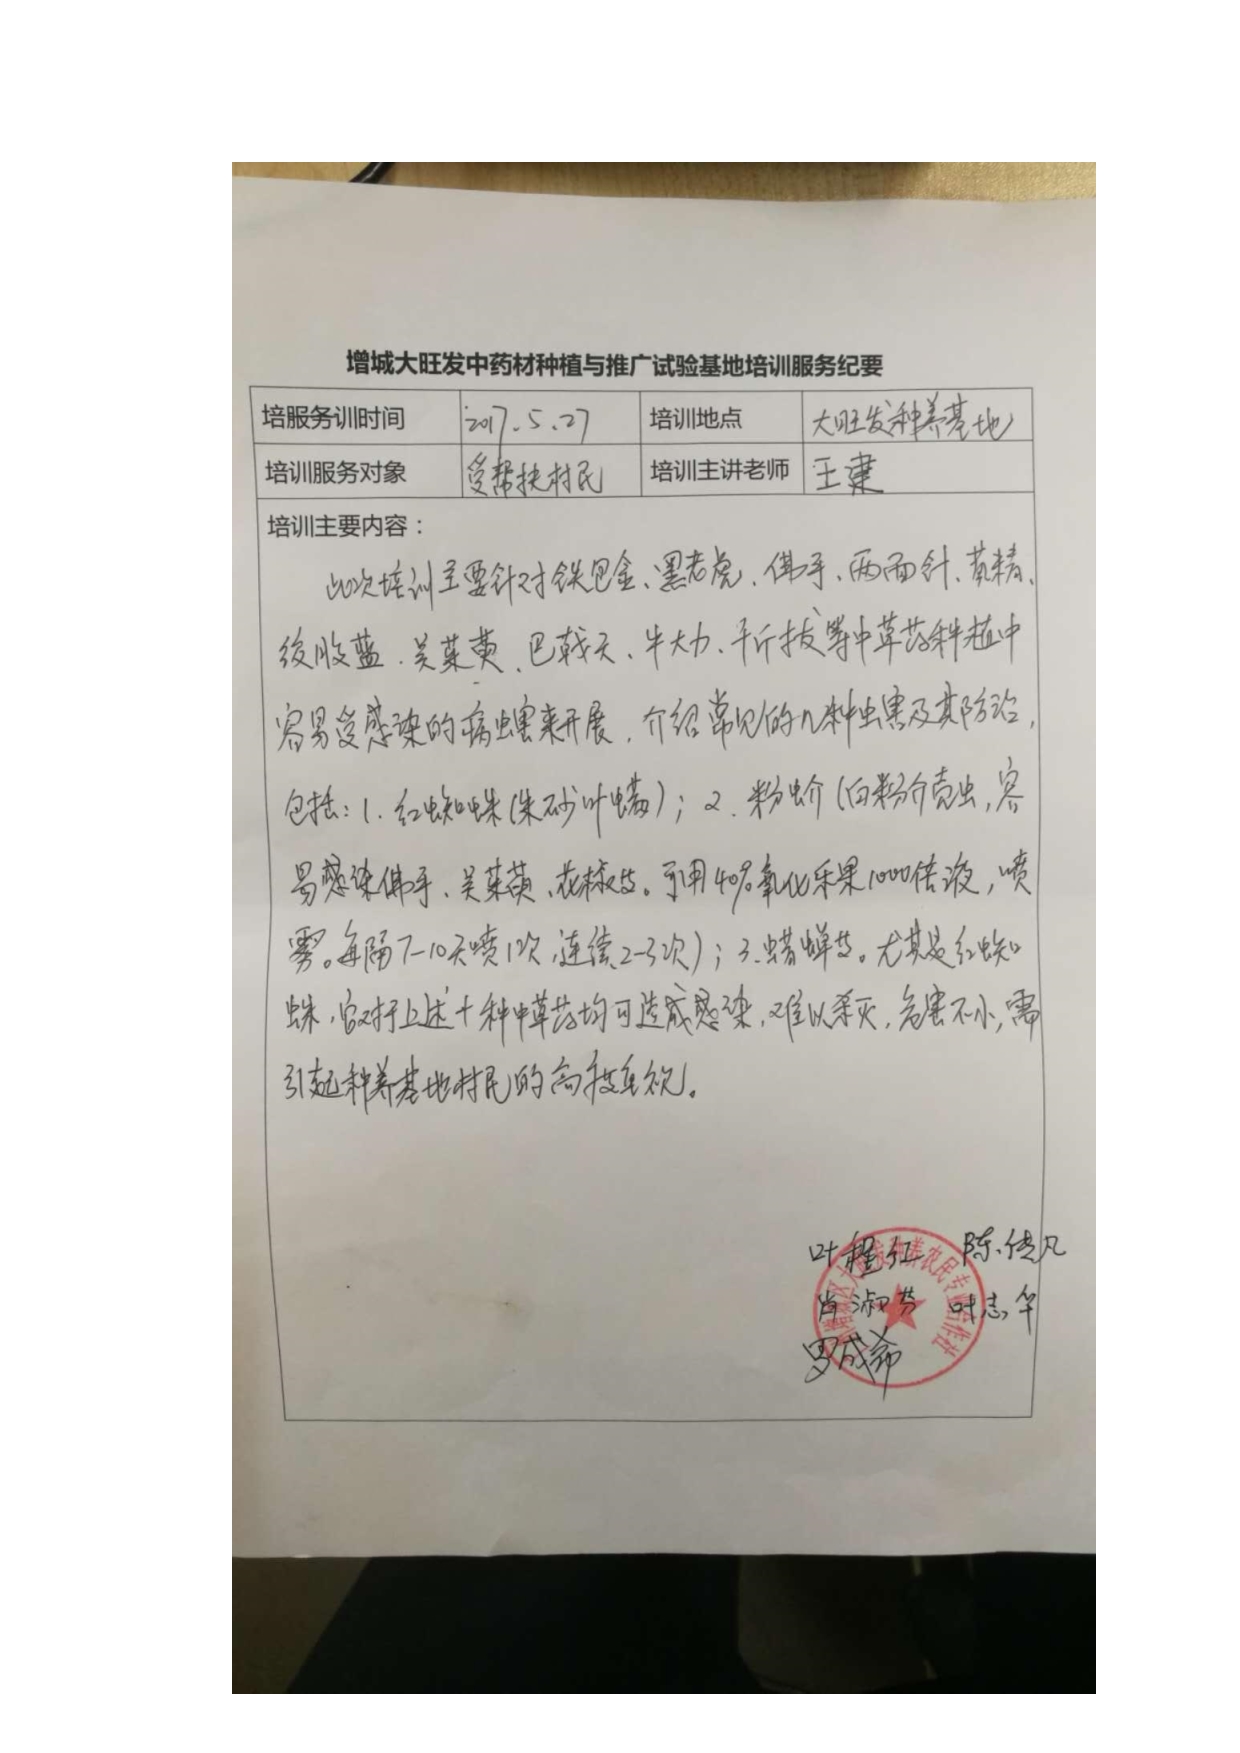 增城大旺发中药材种植与推广试验基地培训服务纪要
培服务训时间 2017.5.27 培训地点 大旺发种养基地
培训服务对象 受帮扶村民 培训主讲老师 王建
培训主要内容：
此次培训主要针对铁包金、黑老虎、佛手、两面针、黄精、
后股蓝、吴茱萸、巴戟天、牛大力、千斤拔等中草药种植中
容易受感染的病虫害来开展，介绍常见的几种虫害及其防治，
包括：1.红蜘蛛(朱砂叶螨)；2.粉蚧(白粉介壳虫，容
易感染佛手、吴茱萸、花椒等。可用40%氧化乐果1000倍液，喷
雾。每隔7-10天喷1次，连续2-3次)；3.蜡蝉等。尤其是红蜘
蛛，它对于上述十种中草药均可造成感染，难以杀灭，危害不小，需
引起种养基地村民的高度重视。
叶 红 陈 凡
肖淑芬 叶志华
罗成
区大旺发种养农民专业合作社